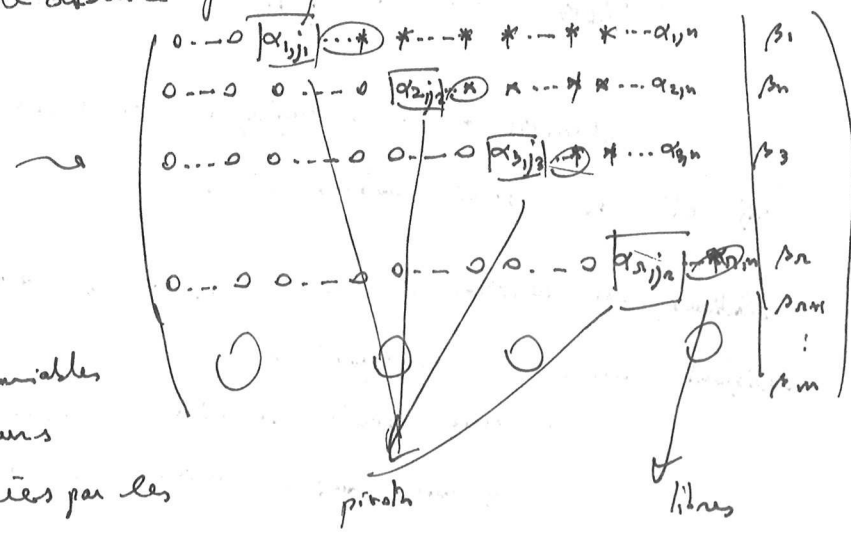 0...0 α₁,ⱼ₁ ...* *...* *...* *...α₁,n β₁
0...0 0...0 α₂,ⱼ₂ ..* *...* *...α₂,n βn
0...0 0...0 0...0 α₃,ⱼ₃ ..* *...α₃,n β₃
0...0 0...0 0...0 0...0 αr,ⱼr βr
βr+1
0 0 0 0 ⋮
βm
par les
pivots libres